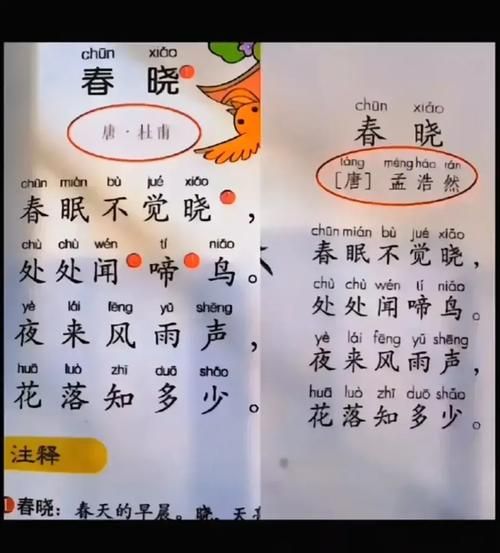 chūn xiǎo
春 晓
唐·杜甫
chūn mián bù jué xiǎo
春眠不觉晓，
chù chù wén tí niǎo
处处闻啼鸟。
yè lái fēng yǔ shēng
夜来风雨声，
huā luò zhī duō shǎo
花落知多少。
注释
春晓：春天的早晨。晓，天亮
chūn xiǎo
春 晓
táng mèng hào rán
［唐］孟浩然
chūn mián bù jué xiǎo
春眠不觉晓，
chù chù wén tí niǎo
处处闻啼鸟。
yè lái fēng yǔ shēng
夜来风雨声，
huā luò zhī duō shǎo
花落知多少。